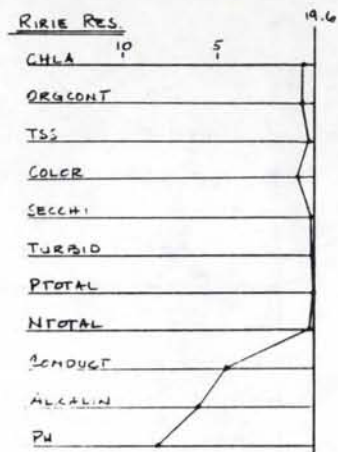 RIRIE RES.
19.6
10 5
CHLA
ORGCONT
TSS
COLOR
SECCHI
TURBID
PTOTAL
NTOTAL
CONDUCT
ALCALIN
PH